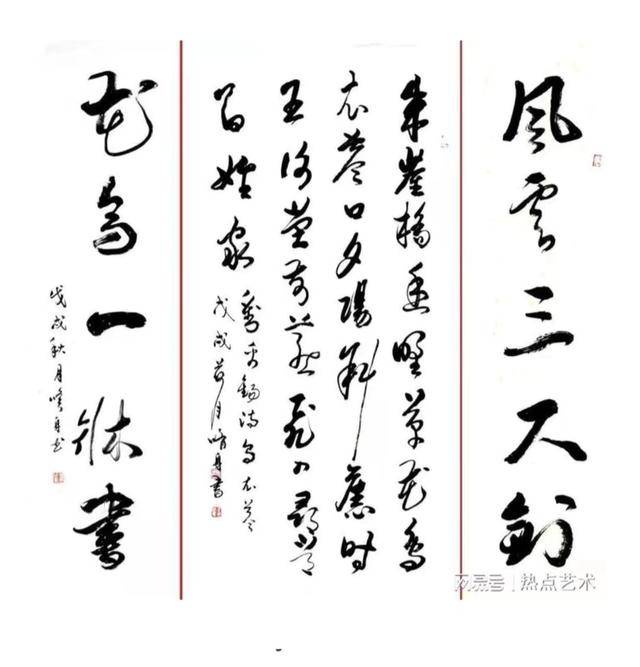 風雲三尺劍
朱雀橋邊野草花烏
衣巷口夕陽斜舊時
王謝堂前燕飛入尋常
百姓家
劉禹錫詩烏衣巷
戊戌荷月書
花鳥一床書
戊戌秋月書
网易号 | 热点艺术